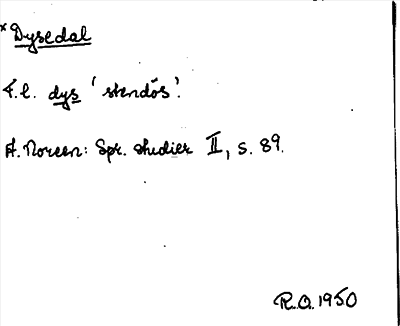 *Dysedal
F.l. dys 'stendös'.
A. Noreen: Spr. studier II, s. 89.
R.O. 1950